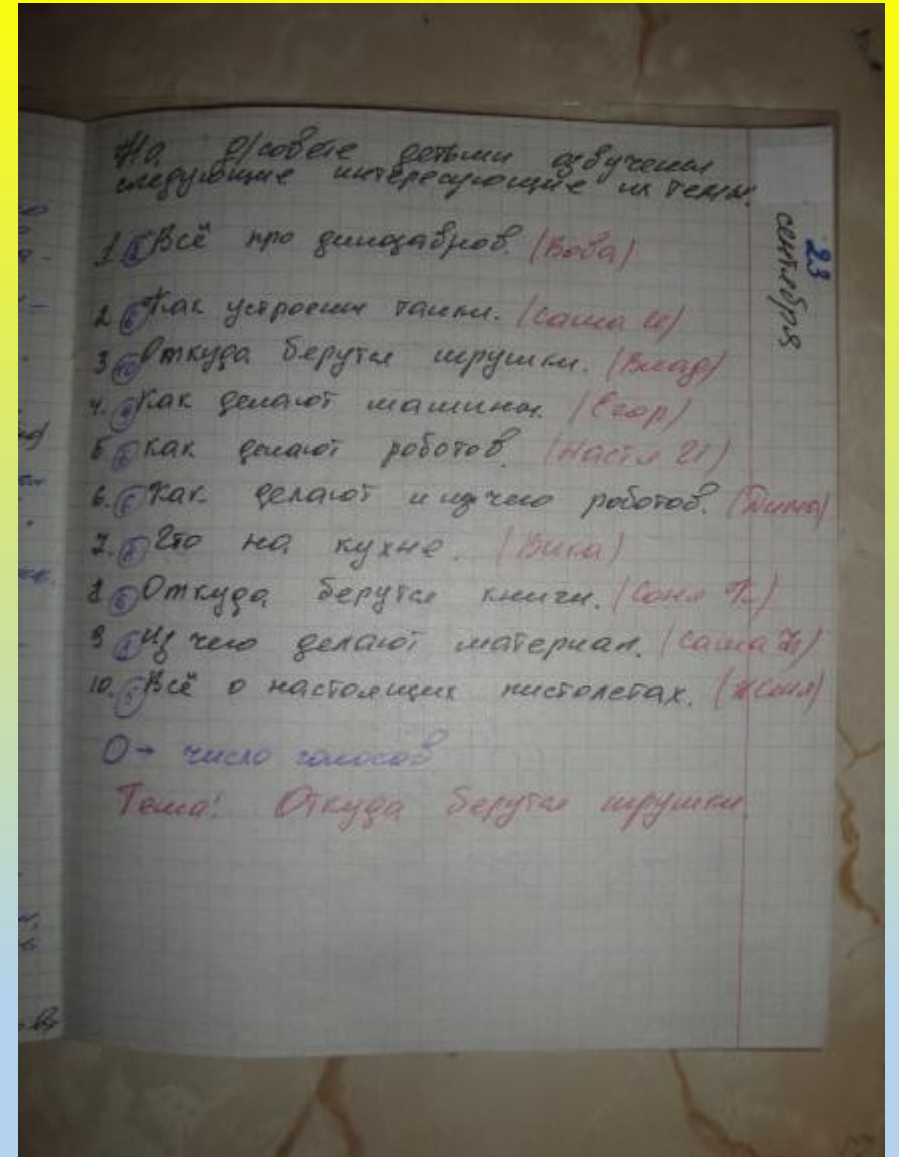 На д/совете детьми озвучены
следующие интересующие их темы.
23
сентября
1. Всё про динозавров. (Вова)
2. Как устроены танки. (Саша И)
3. 10 Откуда берутся игрушки. (Влад)
4. Как делают машины. (Егор)
5 как делают роботов. (Настя И)
6. Как делают и из чего роботов. (Дима)
7. Что на кухне. (Вика)
8 Откуда берутся книги. (Соня К)
9 Из чего делают материал. (Саша)
10. Всё о настоящих пистолетах. (Ксюша)
О → число голосов
Тема: Откуда берутся игрушки.